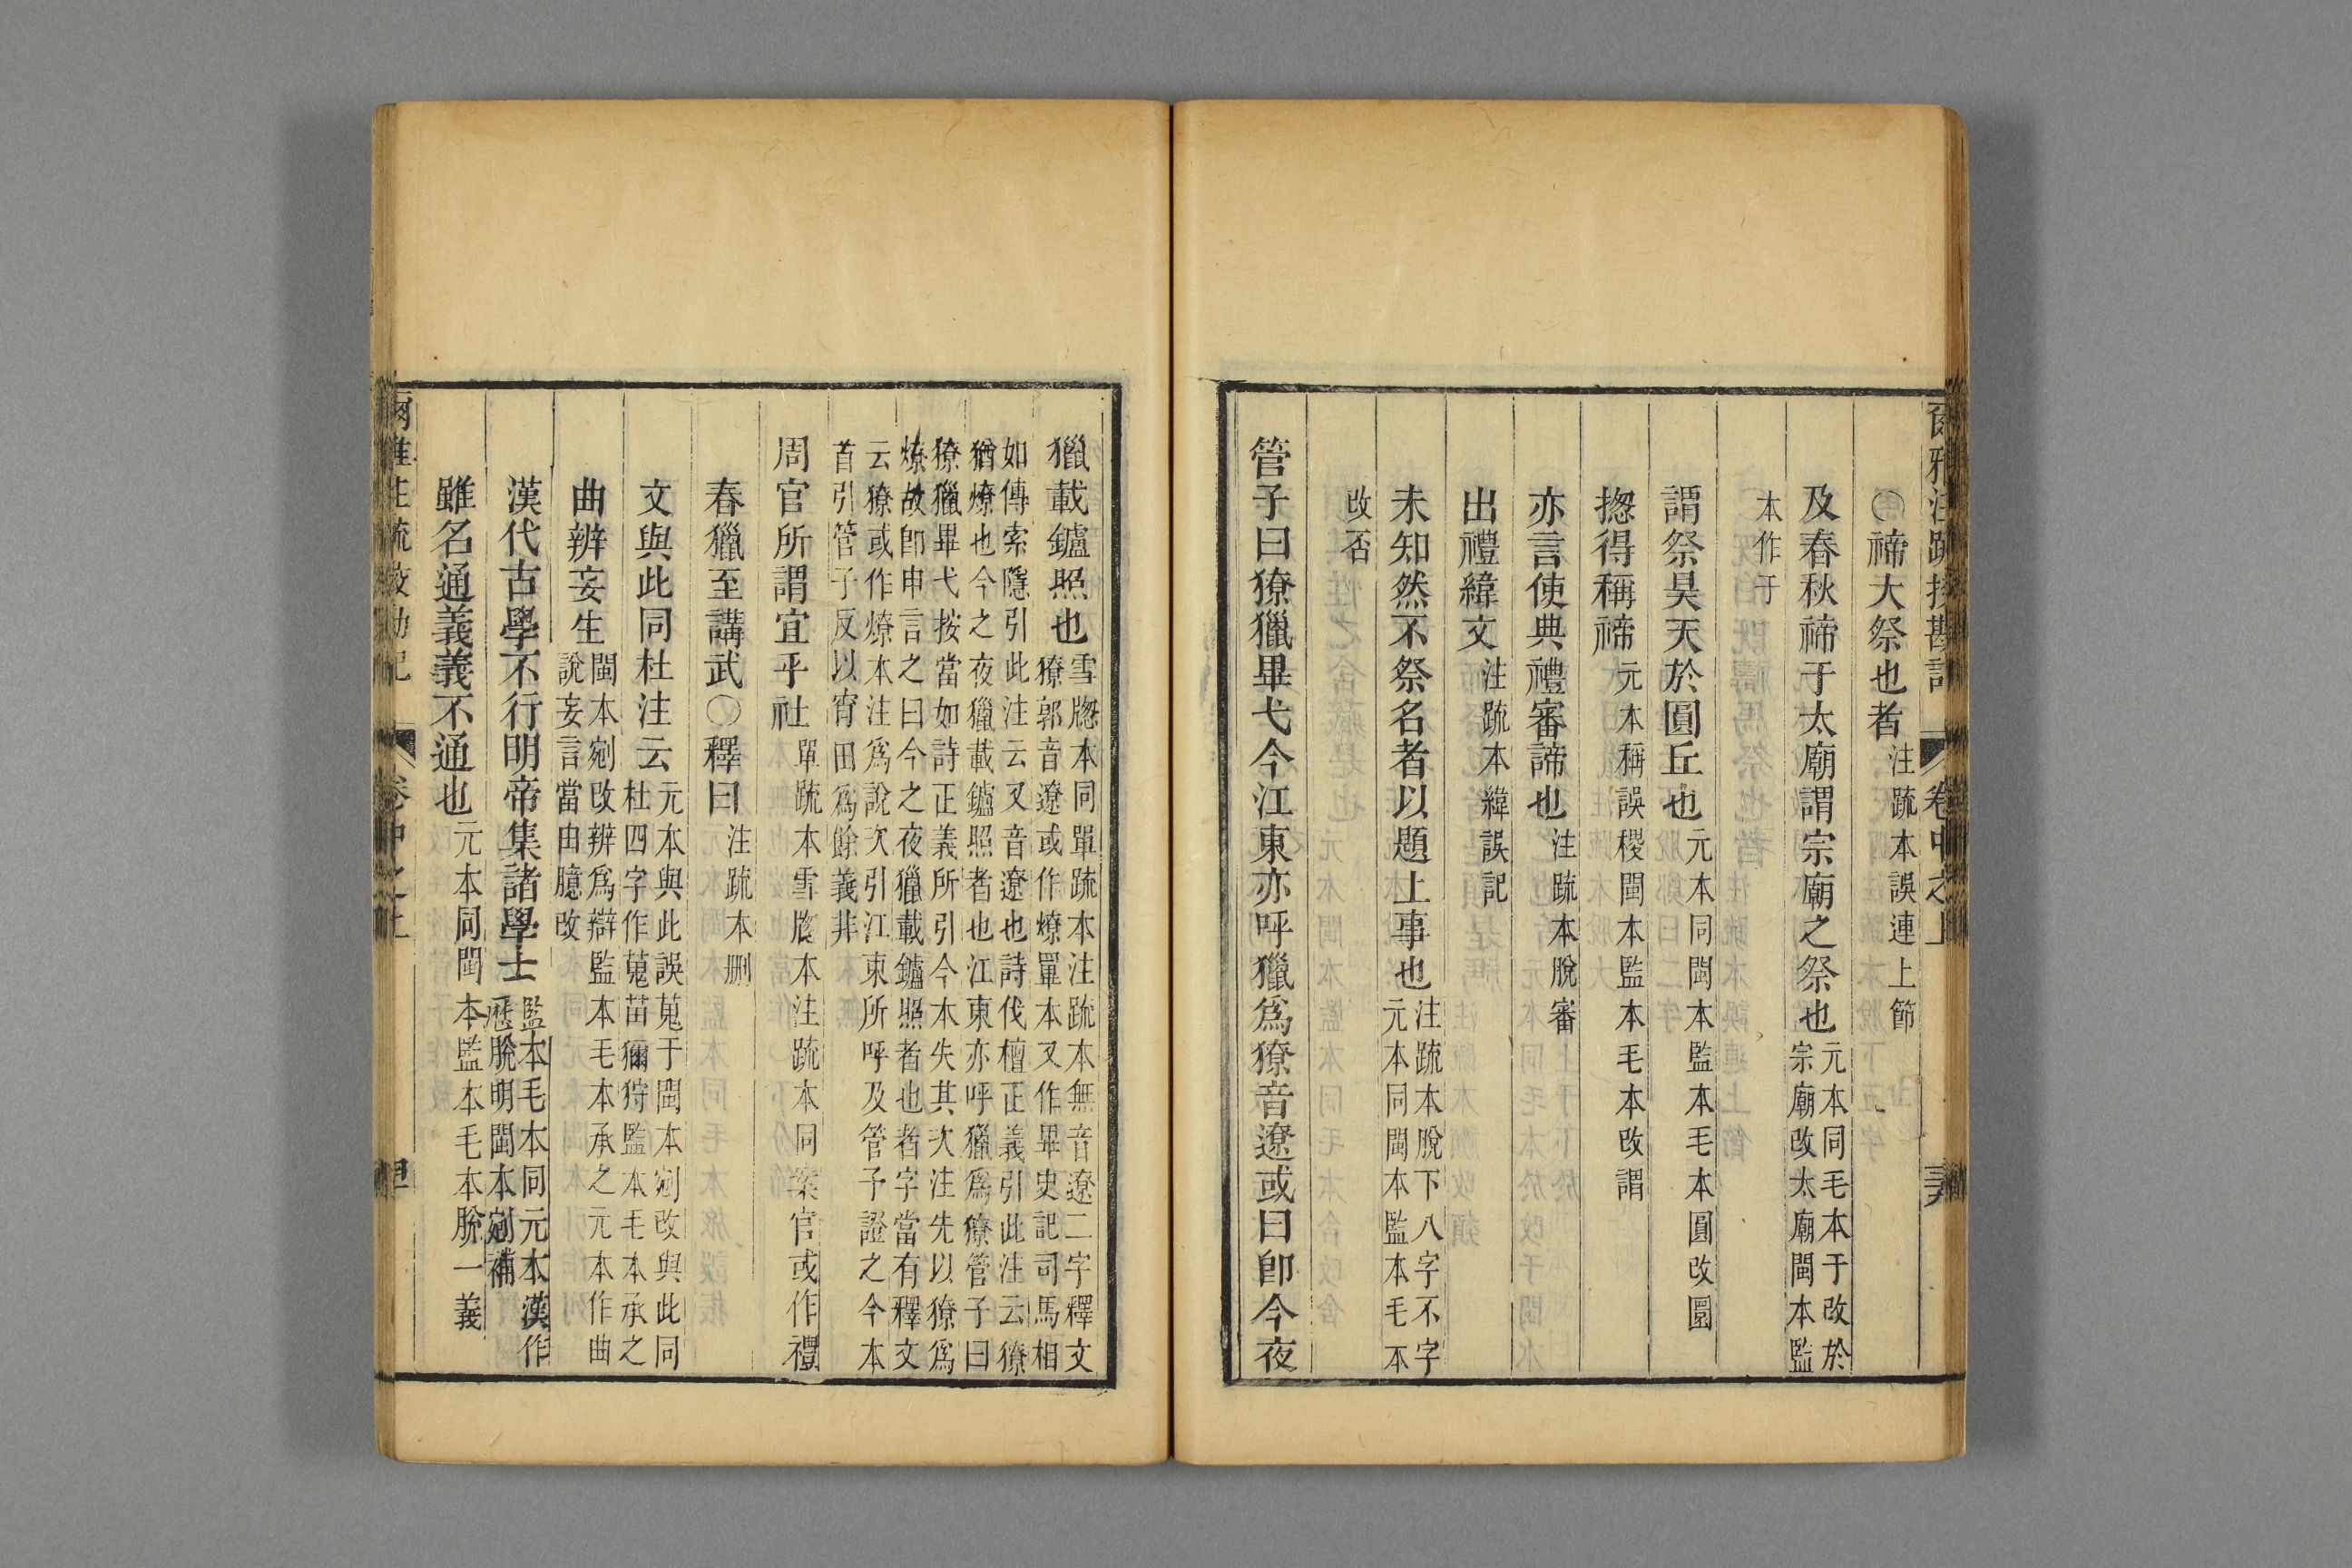 爾雅注疏挍勘記 卷中之上
〇禘大祭也者 注疏本誤連上節
及春秋禘于太廟謂宗廟之祭也 元本同毛本于改於
宗廟改太廟閩本監
本作于
謂祭昊天於圓丘也 元本同閩本監本毛本圓改圜
揔得稱禘 元本稱誤稷閩本監本毛本改謂
亦言使典禮審諦也 注疏本脫審
出禮緯文 注疏本緯誤記
未知然不祭名者以題上事也 注疏本脫下八字不字
元本同閩本監本毛本
改否
管子曰獠獵畢弋今江東亦呼獵爲獠音遼或曰卽今夜
獵載鑪照也 雪牎本同單疏本注疏本無音遼二字釋文
獠郭音遼或作燎罼本又作畢史記司馬相
如傳索隱引此注云又音遼也詩伐檀正義引此注云獠
猶燎也今之夜獵載鑪照者也江東亦呼獵爲獠管子曰
獠獵畢弋按當如詩正義所引今本失其次注先以獠爲
燎故卽申言之曰今之夜獵載鑪照者也者字當有釋文
云獠或作燎本注爲說次引江東所呼及管子證之今本
首引管子反以宵田爲餘義非
周官所謂宜乎社 單疏本雪牎本注疏本同案官或作禮
春獵至講武〇釋曰 注疏本刪
文與此同杜注云 元本與此誤蒐于閩本剜改與此同
杜四字作蒐苗獮狩監本毛本承之
曲辨妄生 閩本剜改辨爲辯監本毛本承之元本作曲
說妄言當由臆改
漢代古學不行明帝集諸學士 監本毛本同元本漢作
歷脫明閩本剜補
雖名通義義不通也 元本同閩本監本毛本脫一義
爾雅注疏挍勘記 卷中之上